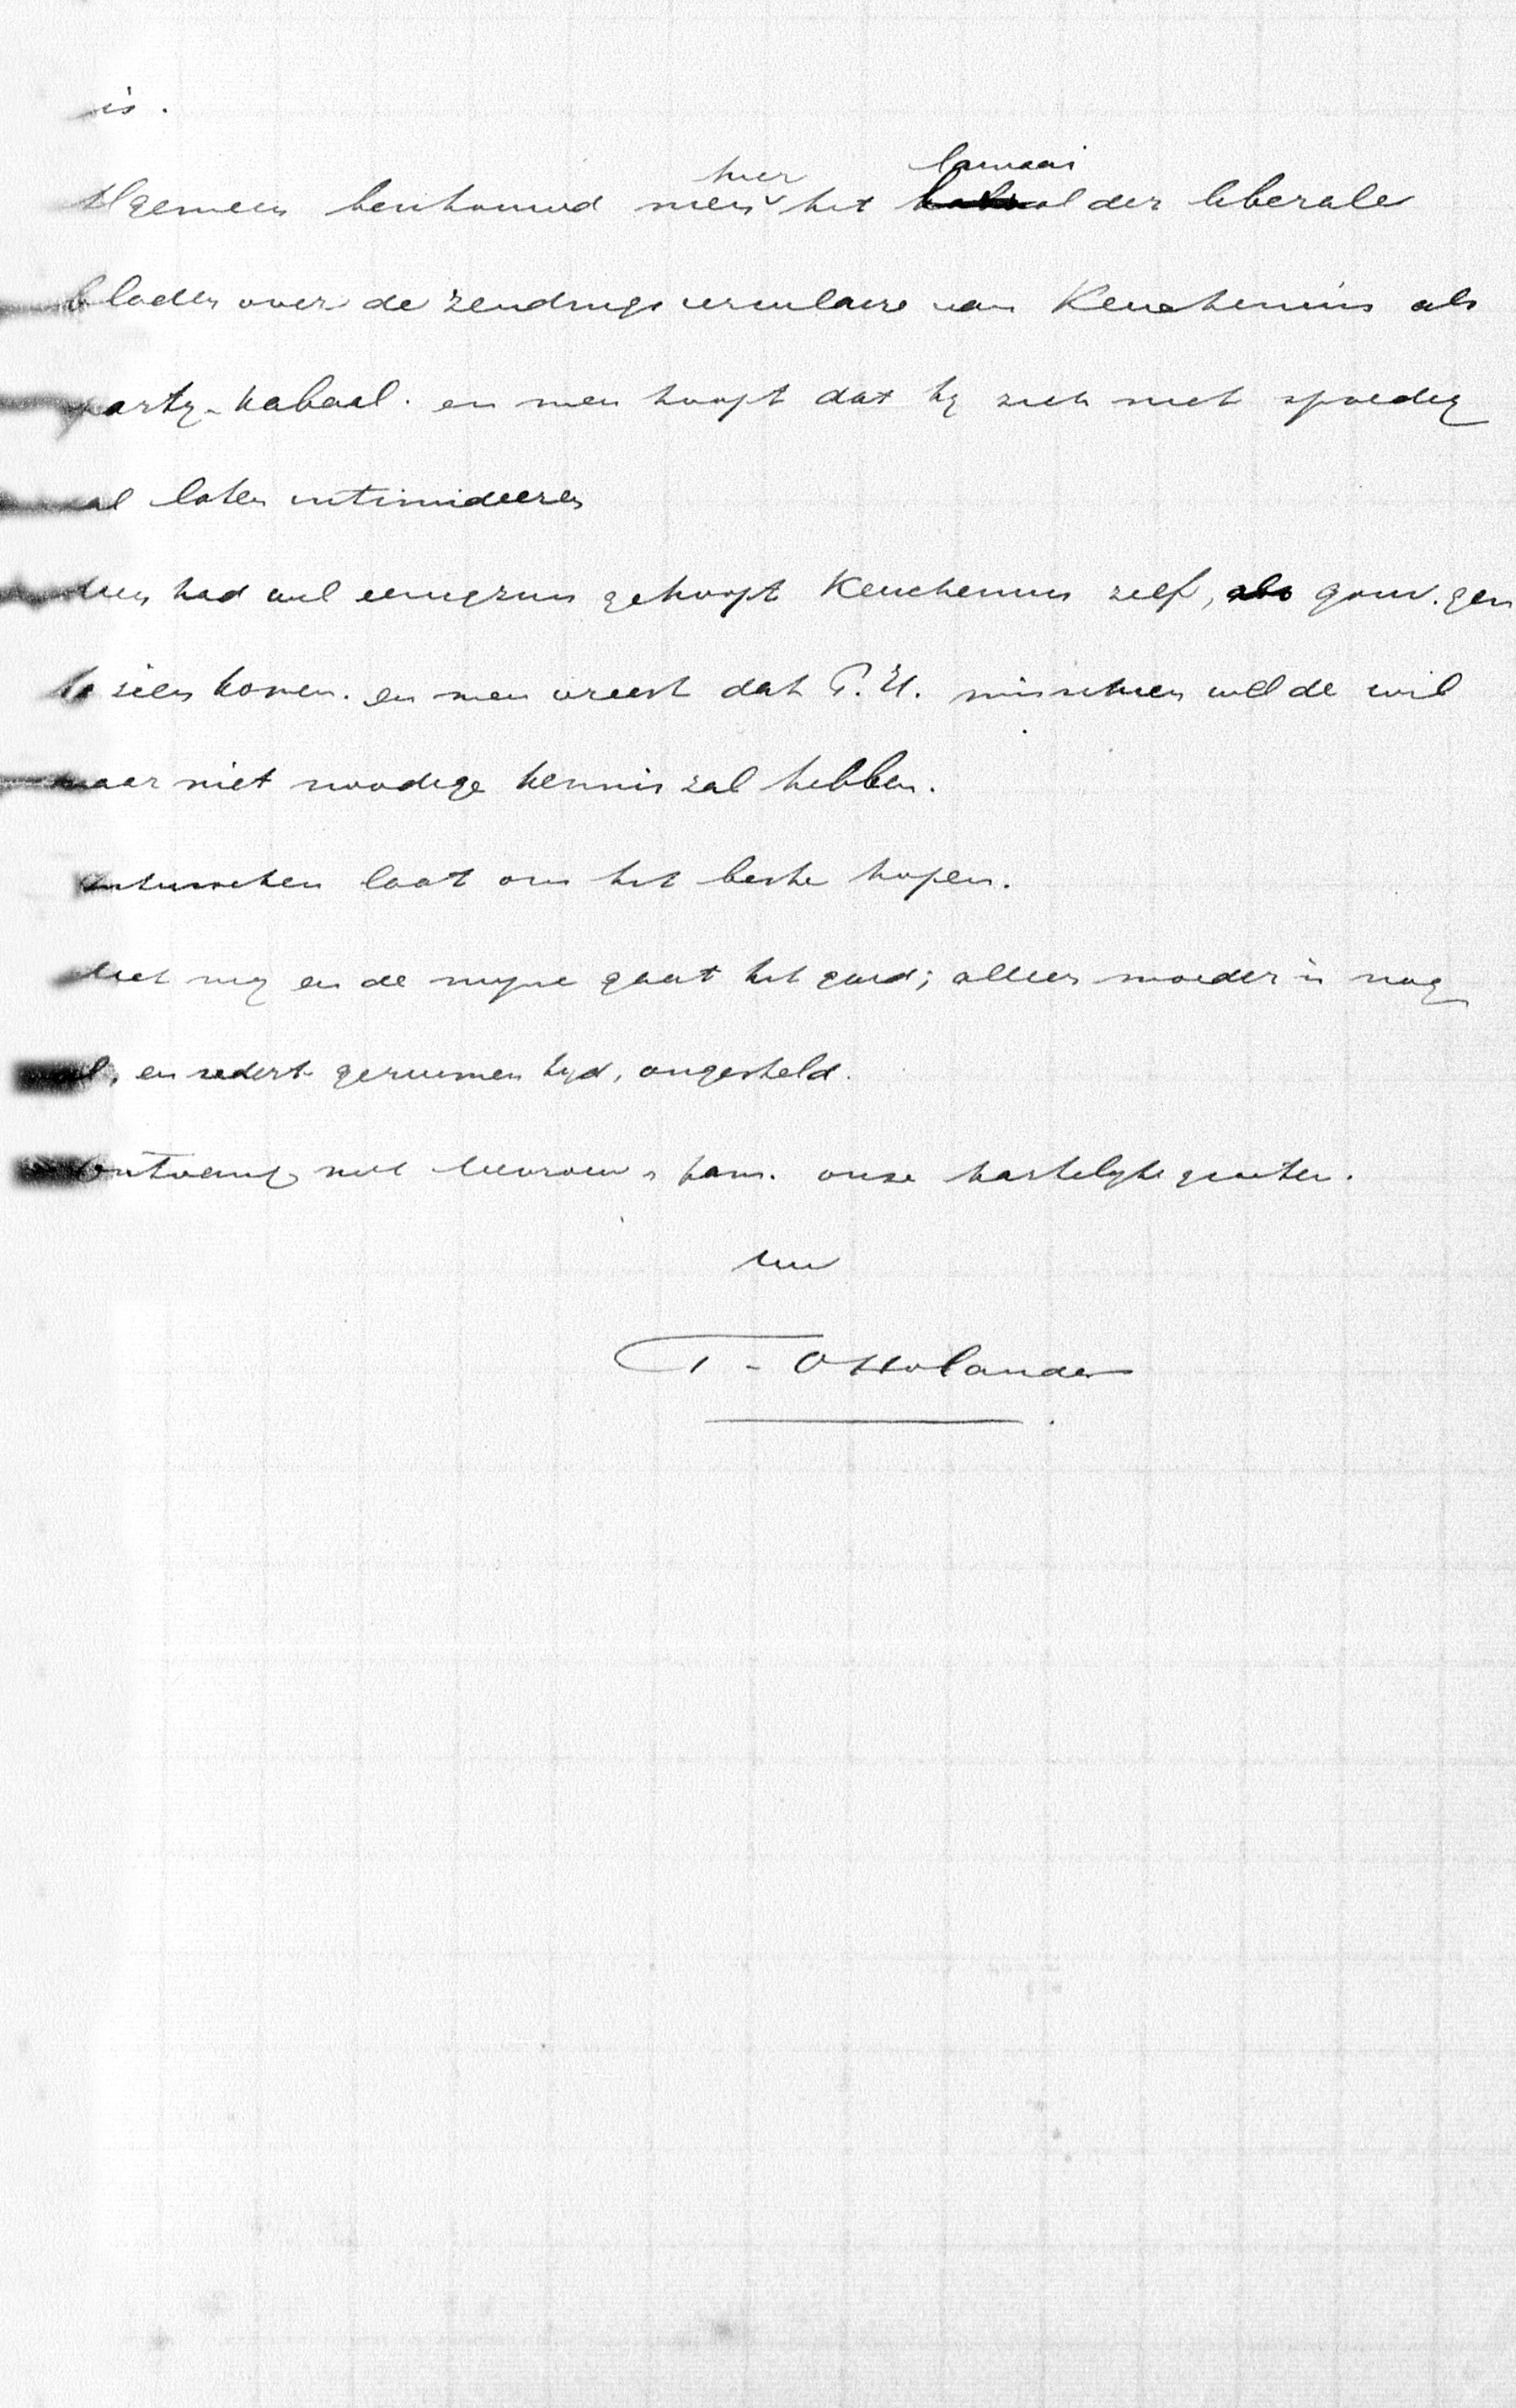 is.
Algemeen beschouwd men hier het lawaai der liberale
bladen over de zendings circulaire van Keuchenius als
party-kabaal. en men hoopt dat hy zich niet spoedig
zal laten intimideeren
Men had wel eenigzins gehoopt Keuchenius zelf, als gouv. gen
te zien komen. en men vreest dat P. H. misschien wel de wil
maar niet noodige kennis zal hebben.
Intusschen laat ons het beste hopen.
Met my en de myne gaat het goed; alleen moeder is nog
al, en sedert geruimen tyd, ongesteld.
Ontvang met Mevrouw & fam. onze hartelyke groeten.
Uw
T. Ottolander